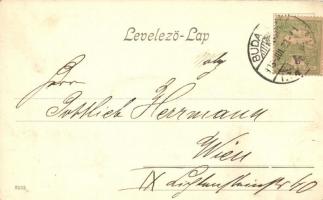 Levelező-Lap
BUDA
Herrn
Gottlich Herrmann
Wien
IX Lichtensteinstr 60